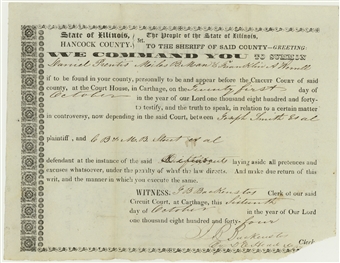 State of Illinois, } ss. The People of the State of Illinois,
HANCOCK COUNTY. TO THE SHERIFF OF SAID COUNTY—GREETING:
WE COMMAND YOU TO SUMMON
if to be found in your county, personally to be and appear before the CIRCUIT COURT of said
county, at the Court House, in Carthage, on the Twenty first day of
October in the year of our Lord one thousand eight hundred and forty-
to testify, and the truth to speak, in relation to a certain matter
in controversy, now depending in the said Court, between Joseph Smith et al
plaintiff, and C B & M B Street et al
defendant at the instance of the said Defendants laying aside all pretences and
excuses whatsoever, under the penalty of what the law directs. And make due return of this
writ, and the manner in which you execute the same.
WITNESS, J B Backenstos Clerk of our said
Circuit Court, at Carthage, this Sixteenth
day of October in the year of Our Lord
one thousand eight hundred and forty-four
J B Backenstos
Clerk